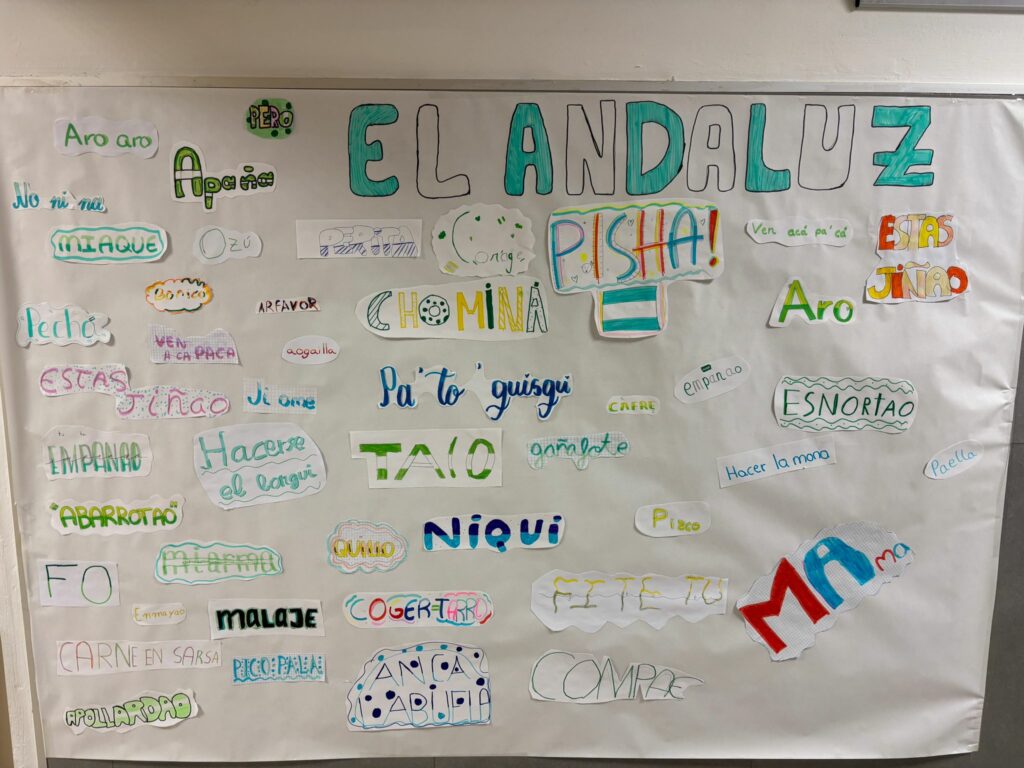 PERO
EL ANDALUZ
Aro aro
Apaña
No ni na
MIAQUE
Ozú
PEPITA
Coraje
PISHA!
Ven acá pa'cá
ESTAS
JIÑAO
ARFAVOR
CHOMINÁ
Aro
Pechá
VEN
A CA PACA
aogailla
ESTAS
JIÑAO
Ji ome
Pa' to' guisqui
CAFRE
empanao
ESNORTAO
EMPANAO
Hacerse
el longui
TAIO
gañafote
Hacer la mona
Paella
"ABARROTAO"
QUIIIO
NIQUI
Pizco
miarma
FO
Enmayao
MALAJE
COGER=TARRO
FITETU
MA
ma
CARNE EN SARSA
PICO PALA
ANCA
LABUELA
COMPAE
APOLLARDAO